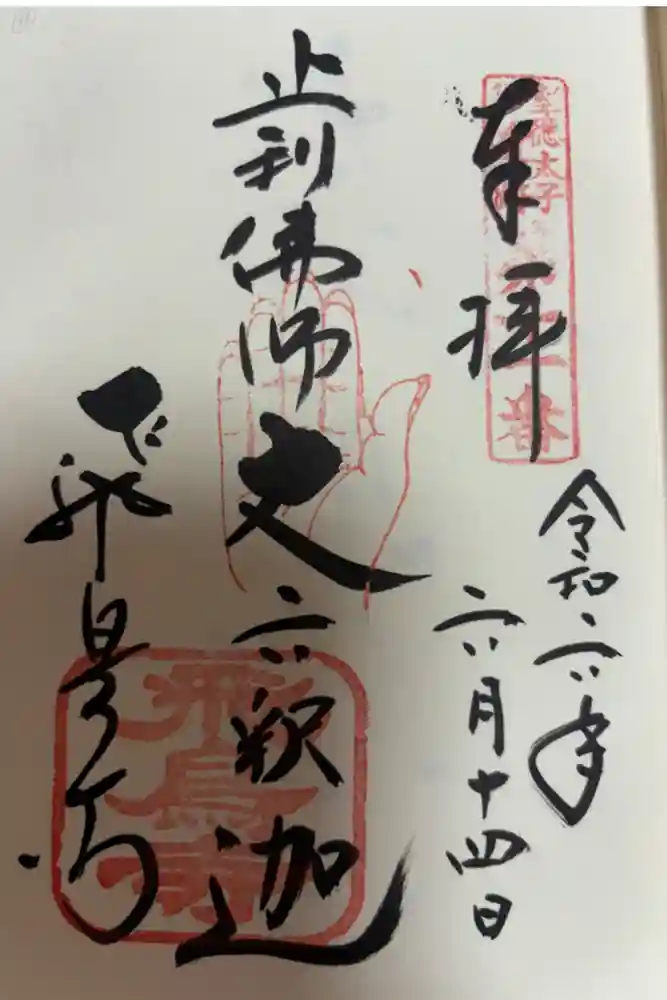 聖徳太子
番
奉拝
令和六年
六月十四日
止利佛師丈六釈迦
飛鳥寺
飛鳥寺